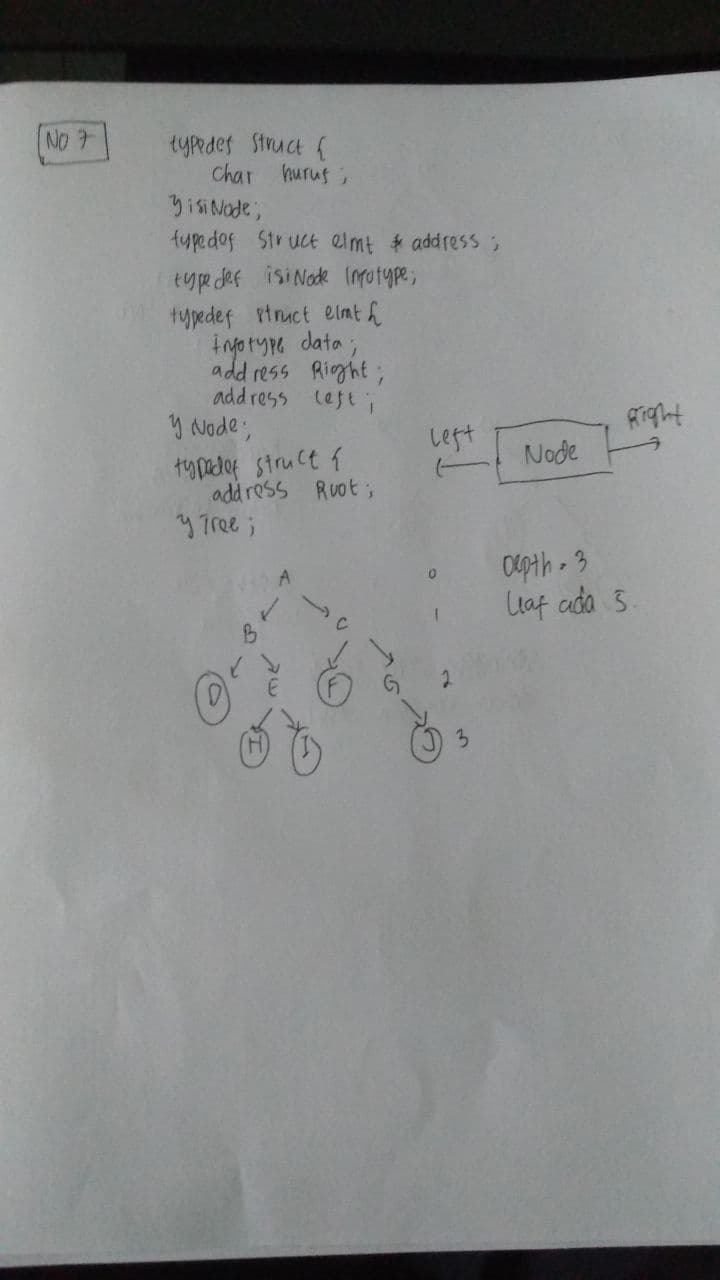 NO 7
typedef struct {
char huruf;
} isiNode;
typedef struct elmt * address;
typedef isiNode Infotype;
typedef struct elmt {
infotype data;
address Right;
address Left;
} Node;
typedef struct {
address Root;
} Tree;
Left Node Right
Depth = 3
Leaf ada 5
A 0
B C 1
D E F G 2
H I J 3